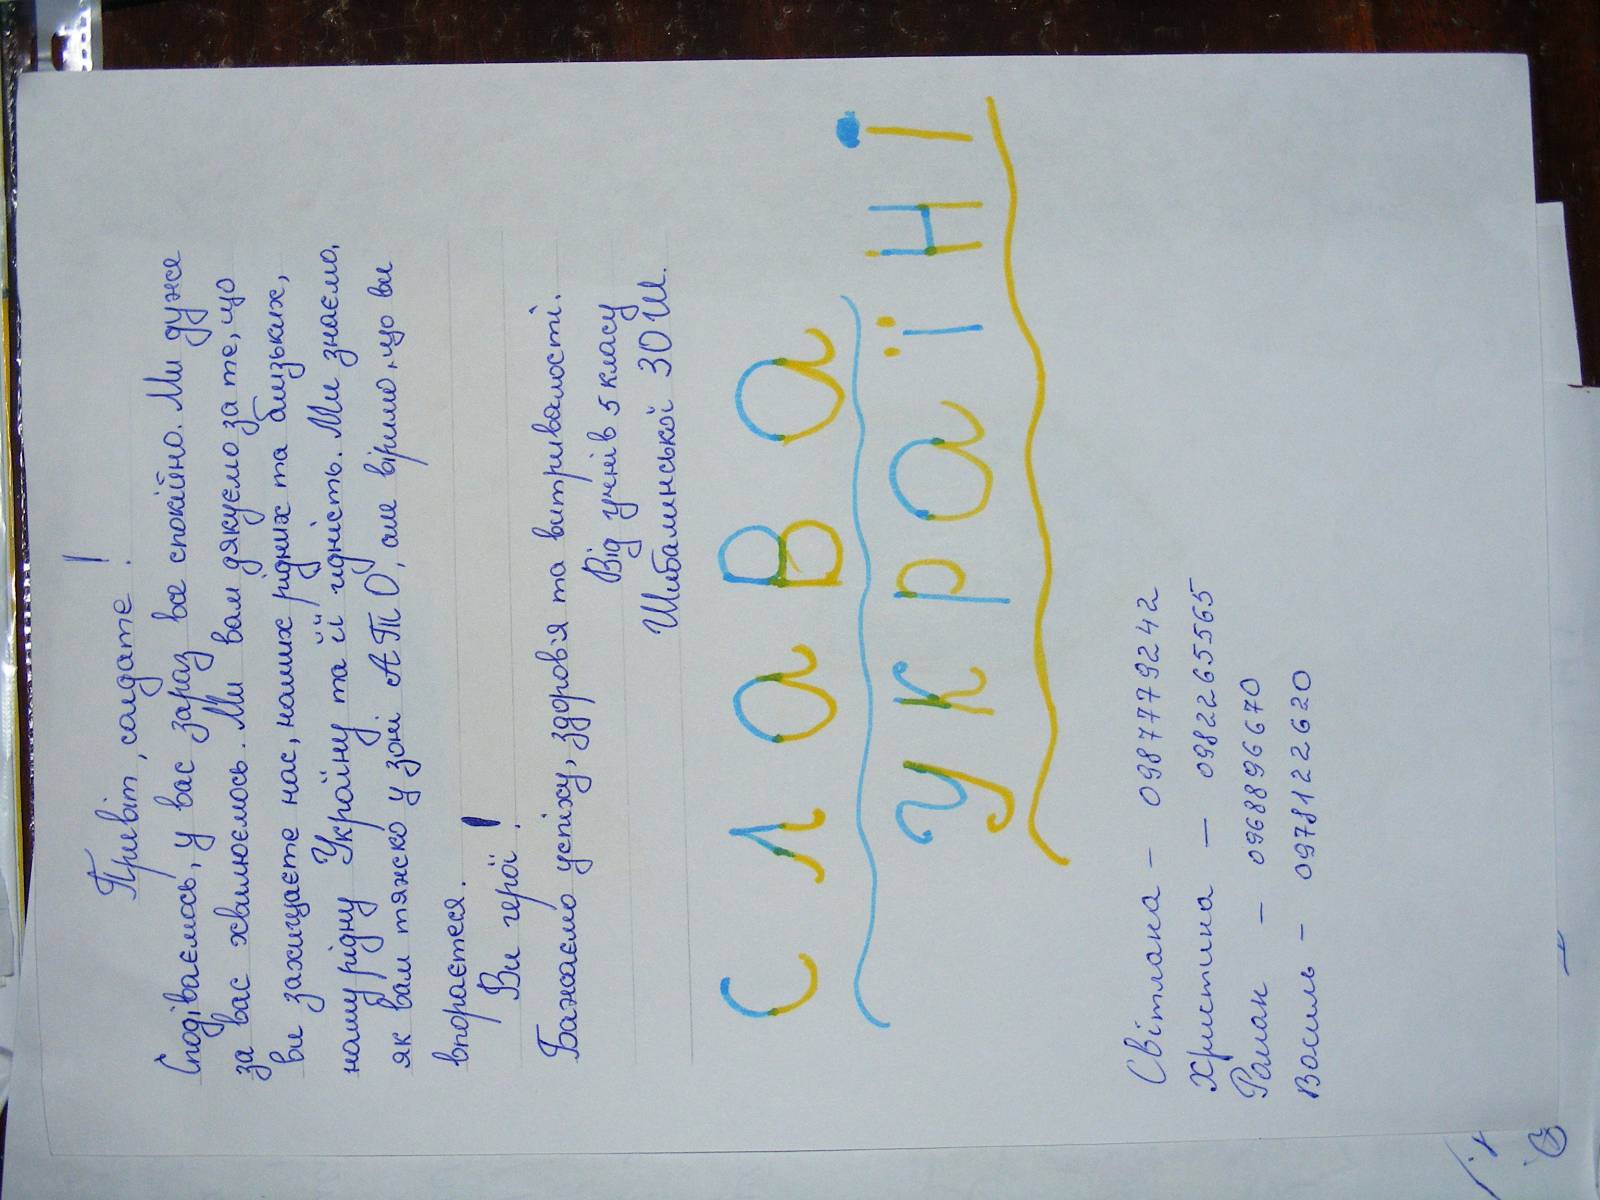 Привіт, солдате!
Сподіваємось, у вас зараз все спокійно. Ми дуже
за вас хвилюємлось. Ми вам дякуємо за те, що
ви захищаєте нас, наших рідних та близьких,
нашу рідну Україну та її гідність. Ми знаємо,
як вам тяжко у зоні АТО, але віримо, що ви
впораєтеся.
Ви герої!
Бажаємо успіху, здоров'я та витривалості.
Від учнів 5 класу
Шибалинської ЗОШ.
Слава
Україні
Світлана - 0987779242
Христина - 0982265565
Роман - 0968896670
Василь - 0978122620